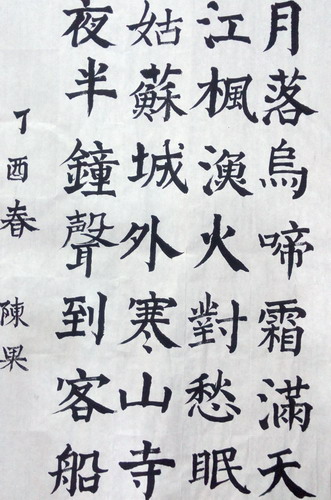 月落烏啼霜滿天
江楓漁火對愁眠
姑蘇城外寒山寺
夜半鐘聲到客船
丁酉春 陳果